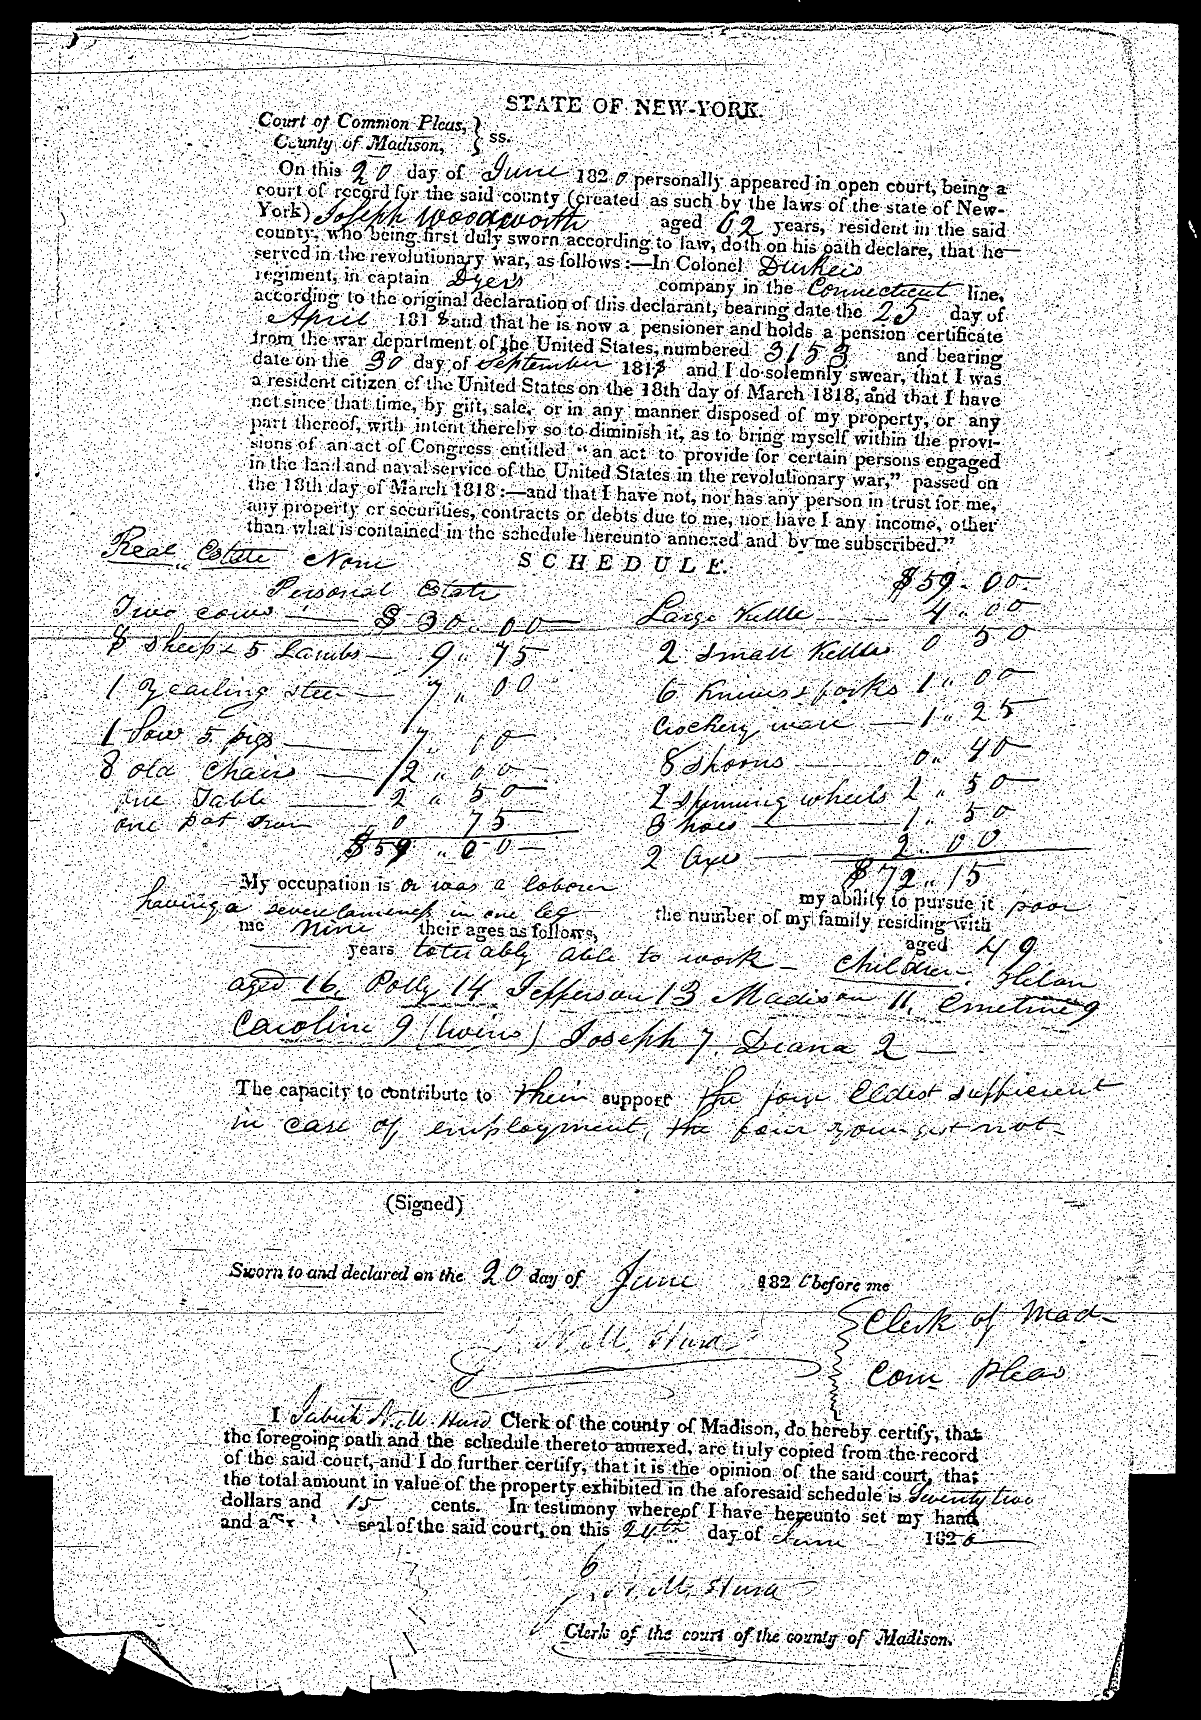 STATE OF NEW-YORK.
Court of Common Pleas, } ss.
County of Madison,
On this 20 day of June 1820 personally appeared in open court, being a
court of record for the said county (created as such by the laws of the state of New-
York) Joseph Woodworth aged 62 years, resident in the said
county, who being first duly sworn according to law, doth on his oath declare, that he
served in the revolutionary war, as follows:—In Colonel Durkeis
regiment, in captain Dyers company in the Connecticut line,
according to the original declaration of this declarant, bearing date the 25 day of
April 1818 and that he is now a pensioner and holds a pension certificate
from the war department of the United States, numbered 3153 and bearing
date on the 30 day of September 1818 and I do solemnly swear, that I was
a resident citizen of the United States on the 18th day of March 1818, and that I have
not since that time, by gift, sale, or in any manner disposed of my property, or any
part thereof, with intent thereby so to diminish it, as to bring myself within the provi-
sions of an act of Congress entitled "an act to provide for certain persons engaged
in the land and naval service of the United States in the revolutionary war," passed on
the 18th day of March 1818:—and that I have not, nor has any person in trust for me,
any property or securities, contracts or debts due to me, nor have I any income, other
than what is contained in the schedule hereunto annexed and by me subscribed."
Real Estate None SCHEDULE.
Personal Estate $59.00
Two cows — $30.00 Large Kettle — 4 " 00
8 Sheep & 5 Lambs — 9 " 75 2 small Kettles 0 50
1 yearling steer — 7 " 00 6 Knives & forks 1 " 00
1 Sow 5 pigs — 7 " 00 Crockery ware — 1 " 25
8 old Chairs — 2 " 00 8 Spoons — 0 " 40
one Table — 2 " 50 2 spinning wheels 2 " 50
one pot Iron 0 75 3 hoes — 1 " 50
$59 " 00 — 2 Axes — 2 " 00
$72 " 15
My occupation is or was a labourer
having a severe lameness in one leg my ability to pursue it poor
the number of my family residing with
me nine their ages as follows, aged 49
years tolerably able to work — Children.
aged 16, Polly 14 Jefferson 13 Madison 11, Emeline 9
Caroline 9 (twins) Joseph 7. Diana 2 —
The capacity to contribute to their support the four Eldest sufficient
in case of employment, the four youngest not—
(Signed)
Sworn to and declared on the 20 day of June 1820 before me
N M Hurd Clerk of Mad-
Com Pleas
I Jabish N. M. Hurd Clerk of the county of Madison, do hereby certify, that
the foregoing oath and the schedule thereto annexed, are truly copied from the record
of the said court, and I do further certify, that it is the opinion of the said court, that
the total amount in value of the property exhibited in the aforesaid schedule is Seventy two
dollars and 15 cents. In testimony whereof I have hereunto set my hand
and seal of the said court, on this 24th day of June 1820
N. M. Hurd
Clerk of the court of the county of Madison.